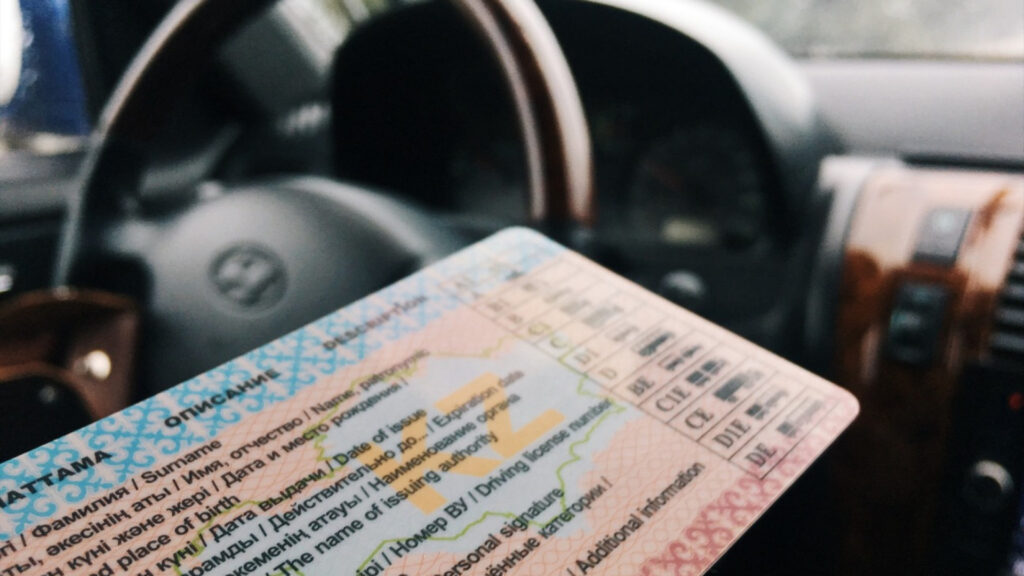 АТТАМА
ОПИСАНИЕ
DESCRIPTION
/ Фамилия / Surname
әкесінің аты / Имя, отчество / Name, patronymic
күні және жері / Дата и место рождения /
place of birth
күні / Дата выдачи / Date of issue
/ Действительно до... / Expiration date
атауы / Наименование органа
The name of issuing authority
/ Номер ВУ / Driving license number
Personal signature
категории /
/ Additional information
KZ
D1
D
BE
C1E
CE
D1E
DE